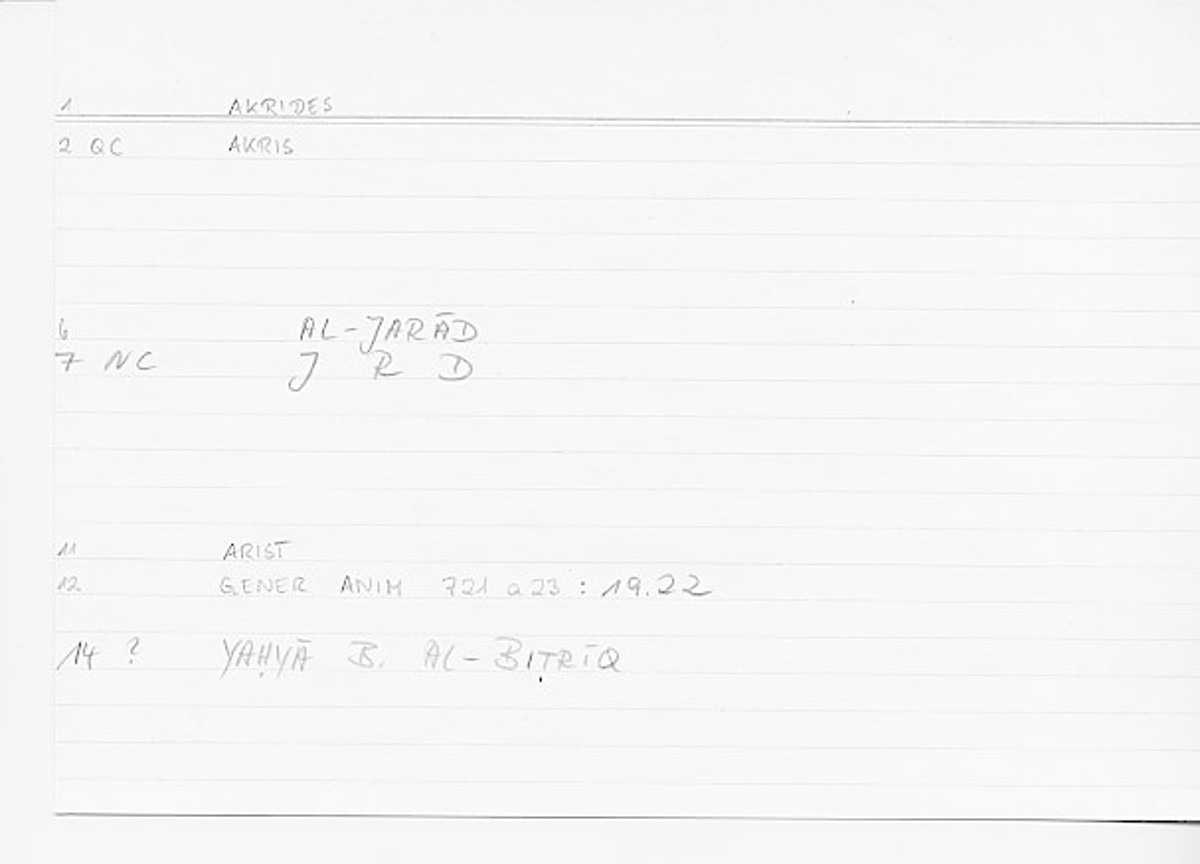 1 AKRIDES
2 QC AKRIS
6 AL-JARĀD
7 NC J R D
11 ARIST
12 GENER ANIM 721 a 23 : 19.22
14 ? YAḤYĀ B. AL-BIṬRĪQ